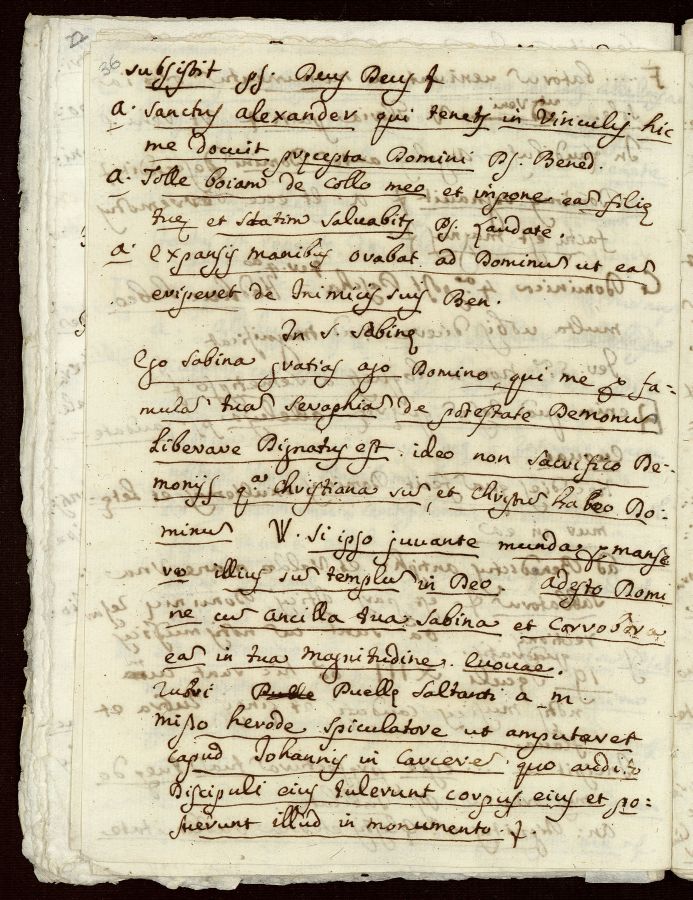 22
36
subsistit ps. Deus Deus
a. Sanctus alexander qui tenetr in Vinculis hic
me docuit pręcepta Domini Ps. Bened.
a. Tolle boiam de collo meo et impone eā filię
tuę et statim saluabitr Ps. Laudate.
a. Expansis manibus orabat ad Dominū ut eā
eriperet de Inimicis suis Ben.
In S. Sabinę
Ego Sabina gratias ago Domino, qui me fa-
mulā tuā Seraphiā de potestate Demonū
liberare Dignatus est. ideo non sacrifico De-
monijs qa Christiana sū, et Christū habeo Do-
minū V. Si ipso juuante munda manse
ro illius sū templū in Deo. adesto Domi
ne cū ancilla tua Sabina et Corrobora
eā in tua magnitudine. Euouae.
Puellę Saltanti a m.
Misso herode spiculatore ut amputaret
capud Johannis in Carcere quo audito
Discipuli eius tulerunt corpus eius et po-
suerunt illud in monumento.